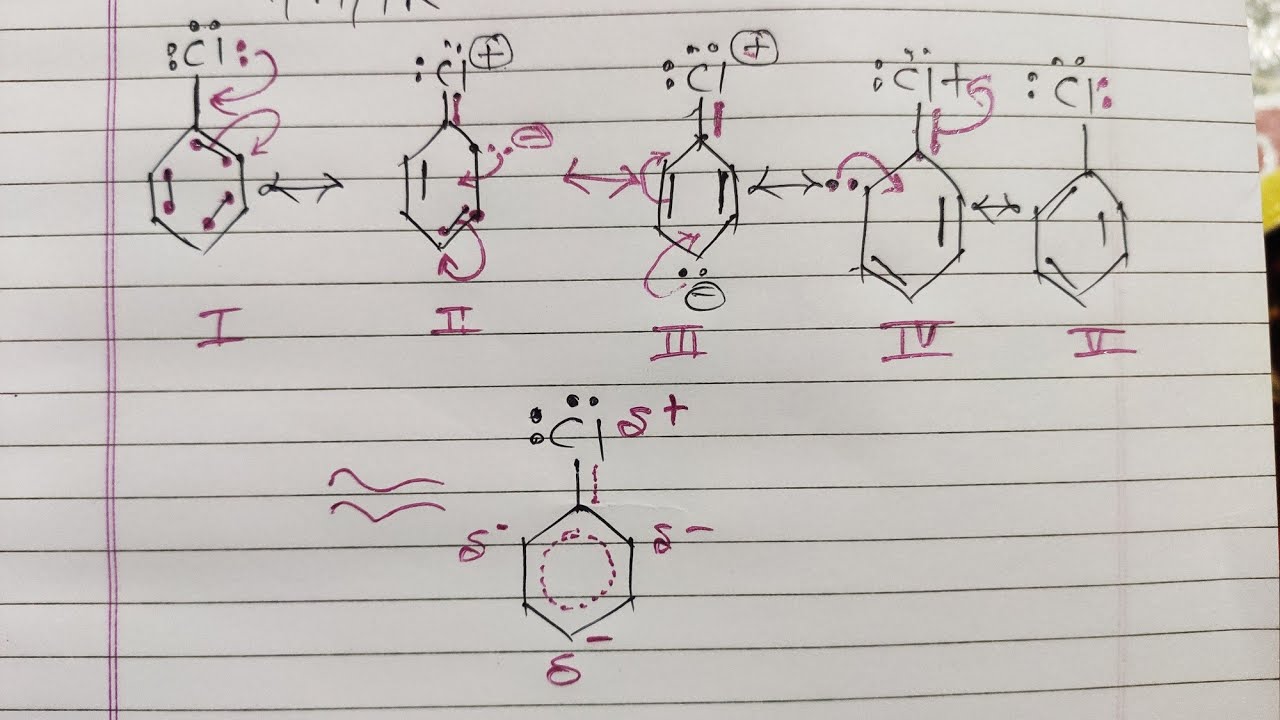 :Cl: :Cl ⊕ :Cl ⊕ :Cl+ :Cl:
⊖
⊖
I II III IV V
:Cl δ+
δ- δ-
δ-